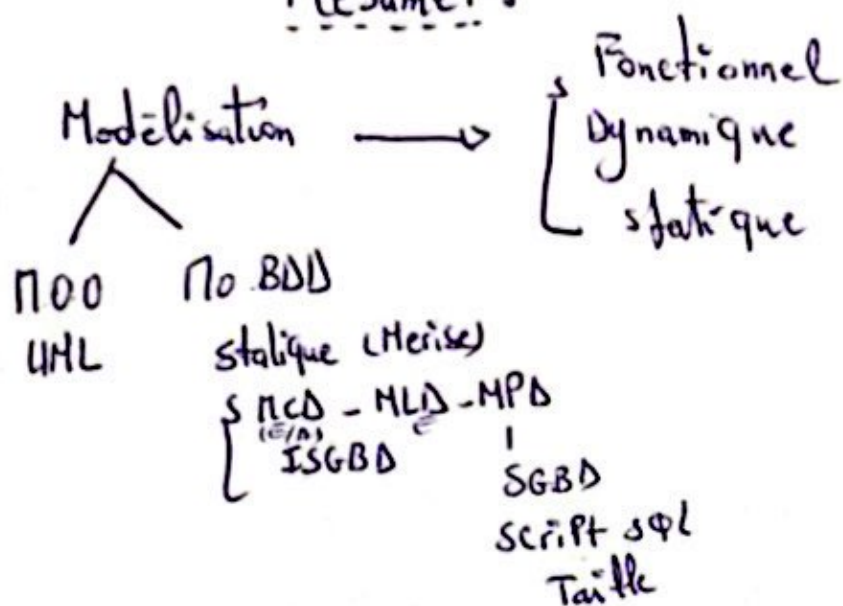 Résumé :
Modélisation
Fonctionnel
Dynamique
statique
MOO
UML
Mo BDD
statique (Merise)
MCD - MLD - MPD
(E/A)
ISGBD
SGBD
script SQL
Taille